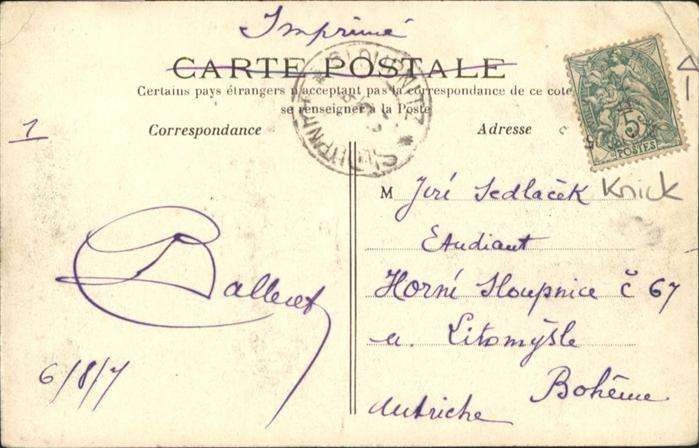 Imprimé
CARTE POSTALE
Certains pays étrangers n'acceptant pas la correspondance de ce coté
se renseigner à la Poste
Correspondance
Adresse
1
5
POSTES
Knick
M Jiří Sedlaček
Etudiant
Horní Sloupnice č 67
u. Litomyšle
Bohême
Autriche
6/8/7